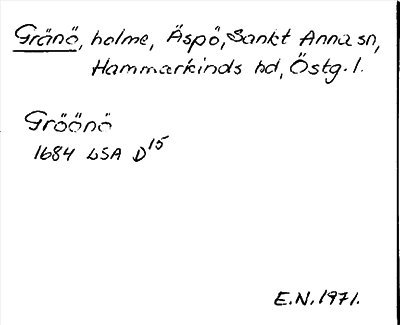 Gränö, holme, Äspö, Sankt Anna sn,
Hammarkinds hd, Östg. l.
Gröönö
1684 LSA D15
E.N. 1971.